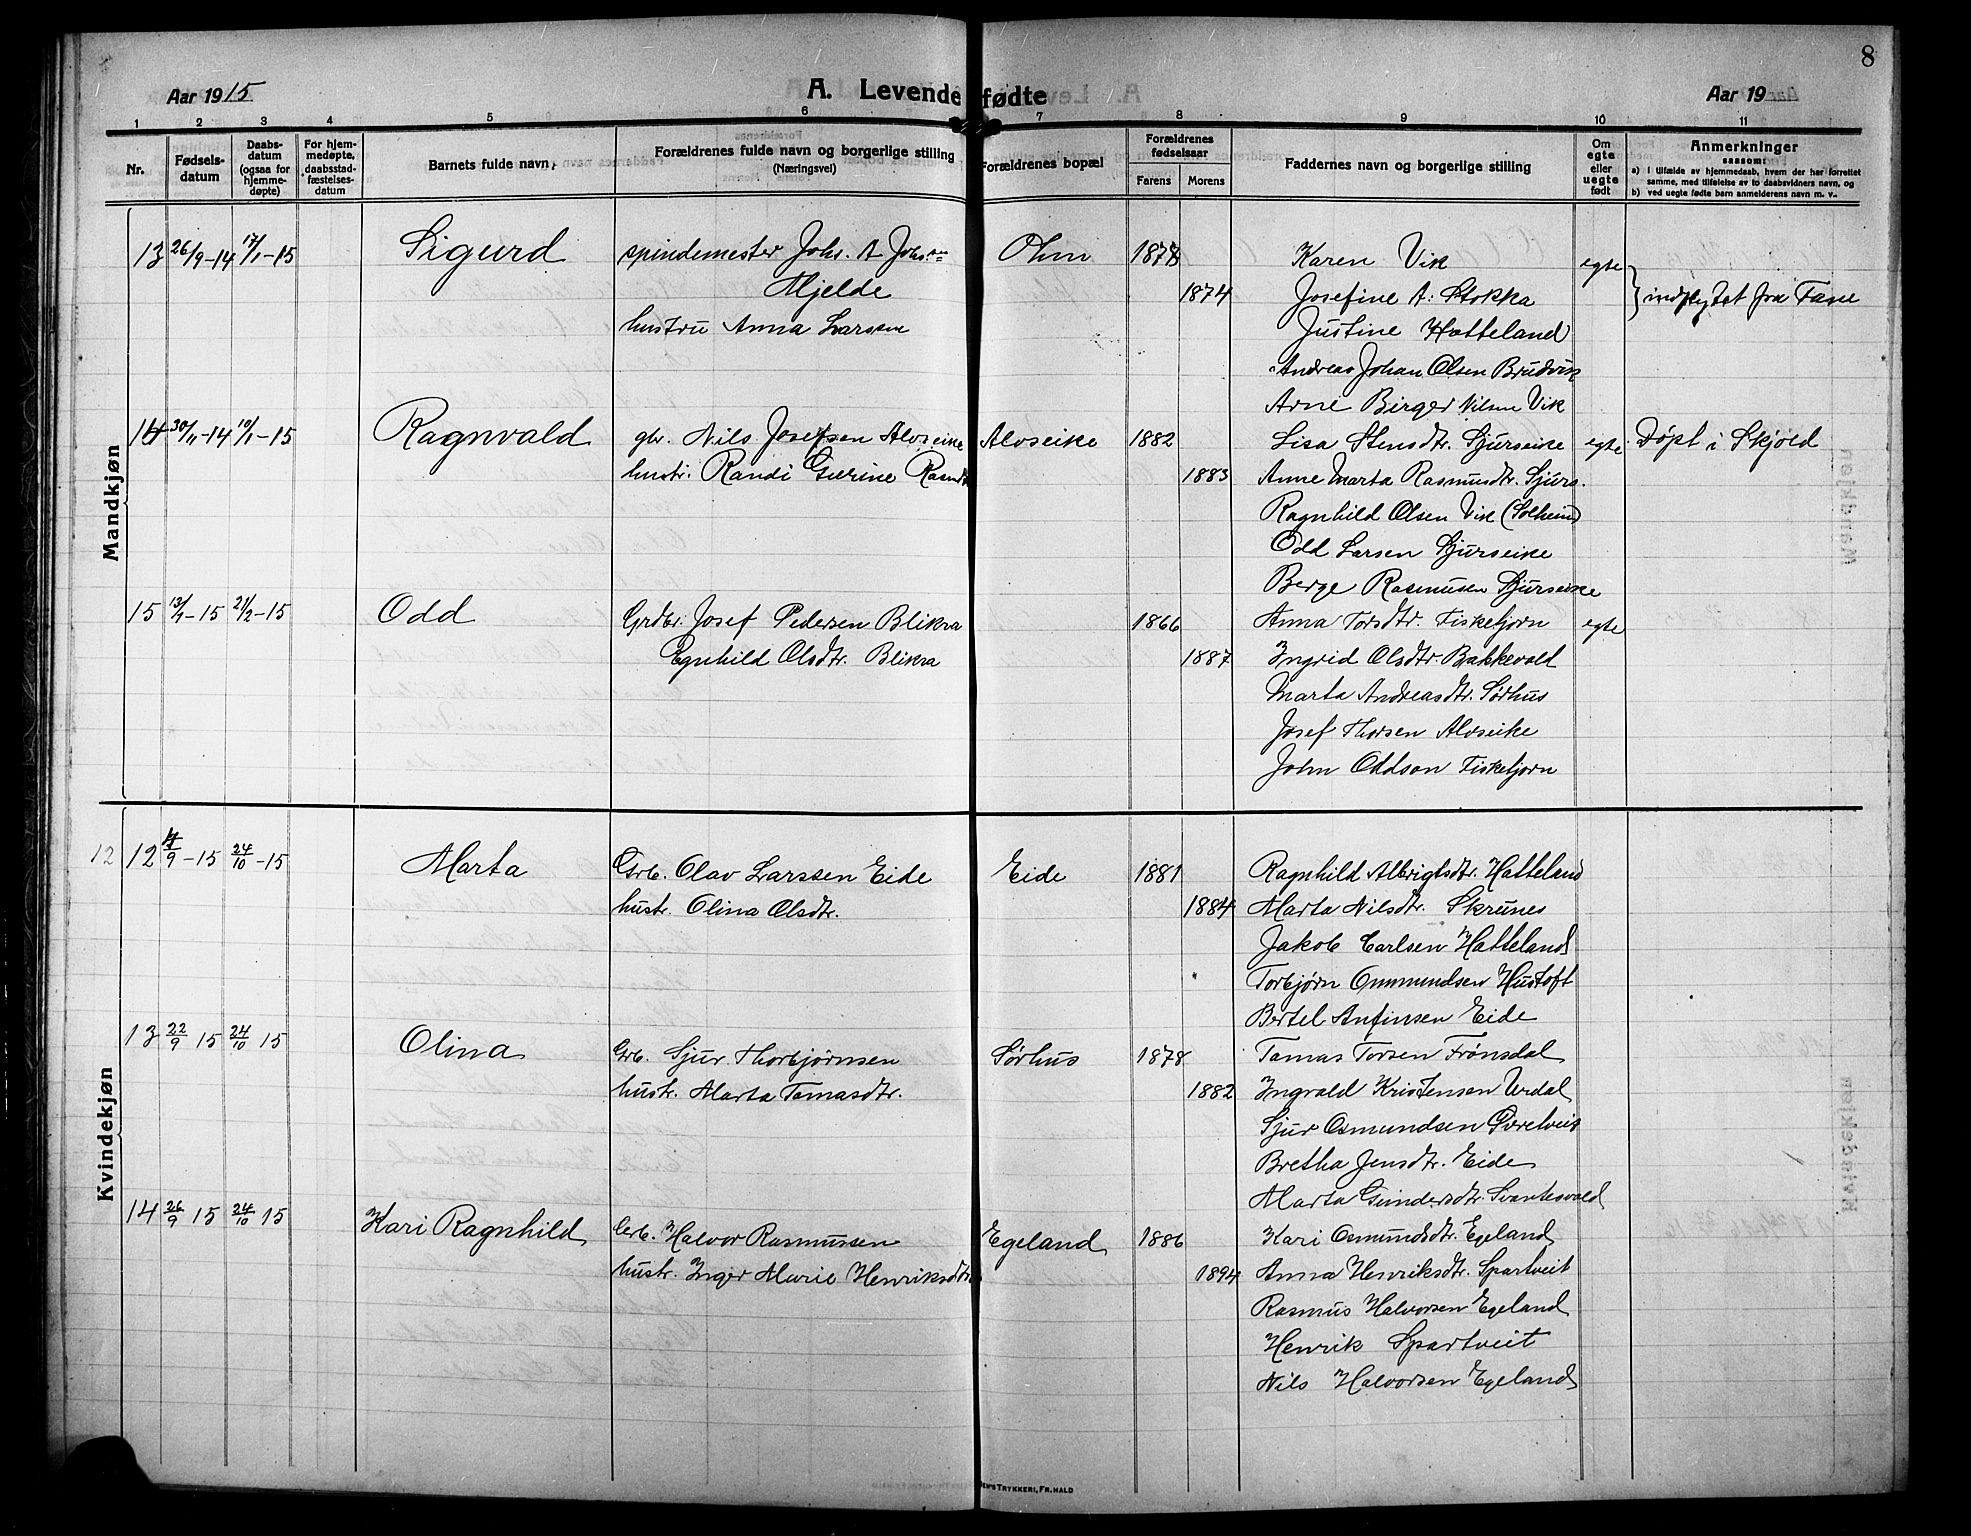 8
Aar 1915
A. Levendefødte
Aar 19
1 2 3 4 5 6 7 8 9 10 11
Nr.
Fødselsdatum
Daabsdatum (ogsaa for hjemmedøpte)
For hjemmedøpte, daabsstadfæstelsesdatum
Barnets fulde navn
Forældrenes fulde navn og borgerlige stilling
(Næringsvei)
Forældrenes bopæl
Forældrenes fødselsaar
Farens Morens
Faddernes navn og borgerlige stilling
Om egte eller uegte født
Anmerkninger
saasom:
a) i tilfælde av hjemmedaab, hvem der har forrettet samme, med tilføielse av to daabsvidners navn, og
b) ved uegte fødte barn anmelderens navn m. v.
Mandkjøn
13 26/9-14 17/1-15 Sigurd spindemester Johs. A Johs.en Ohm 1878 Karen Vik egte
Mjelde 1874 Josefine A. Stokka indflytet fra Fane
hustru Anna Larsen Justine Hatteland
Andreas Johan Olsen Brudvik
Arne Birger Nilsen Vik
14 30/11-14 10/1-15 Ragnvald gbr. Nils Josefsen Alvseike Alvseike 1882 Lisa Stensdtr. Sjurseike egte Døpt i Skjold
hustr. Randi Gurine Rasmdtr 1883 Anne Marta Rasmusdtr. Sjurs.
Ragnhild Olsen Vik (Solheim)
Odd Larsen Sjurseike
Berge Rasmusen Sjurseike
15 21/2-15 Odd Grdbr. Josef Pedersen Blikra 1866 Anna Torsdtr. Fisketjørn egte
Ragnhild Olsdtr. Blikra 1887 Ingrid Olsdtr. Bakkevold
Marta Andreasdtr. Sørhus
Josef Thorsen Alvseike
John Oddson Fisketjørn
Kvindekjøn
12 12 /9-15 24/10-15 Marta Grb. Olav Larssen Eide Eide 1881 Ragnhild Albrigtsdtr. Hatteland
hustr. Olina Olsdtr. 1884 Marta Nilsdtr. Skrunes
Jakob Carlsen Hatteland
Torbjørn Gunmundsen Hustoft
Bertel Anfinsen Eide
13 22/9 15 24/10 15 Olina Grb. Sjur Thorbjørnsen Sørhus 1878 Tomas Torsen Frønsdal
hustr. Marta Tomasdtr. 1882 Ingvald Kristensen Urdal
Sjur Osmundsen
Bretha Jensdtr. Eide
Marta Gundersdtr. Svantesvold
14 26/9 15 24/10 15 Kari Ragnhild Grb. Halvor Rasmussen Egeland 1886 Kari Osmundsdtr. Egeland
hustr. Inger Marie Henriksdtr. 1894 Anna Henriksdtr. Spartveit
Rasmus Halvorsen Egeland
Henrik Spartveit
Nils Halvorsen Egeland
TRYKKERI, FR. HALD